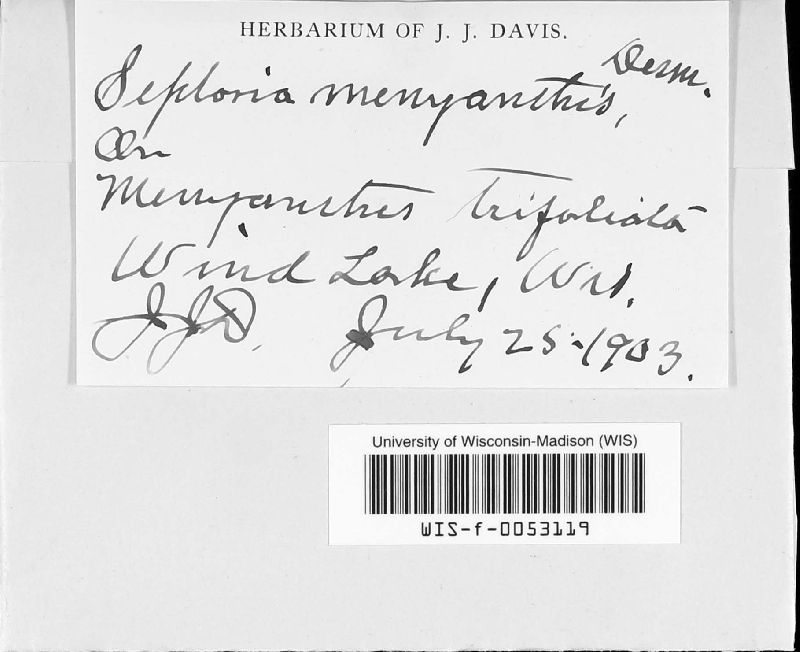 HERBARIUM OF J. J. DAVIS.
Septoria menyanthis, Desm.
On
Menyanthes trifoliata
Wind Lake, Wis.
JJD. July 25-1903.
University of Wisconsin-Madison (WIS)
WIS-f-0053119